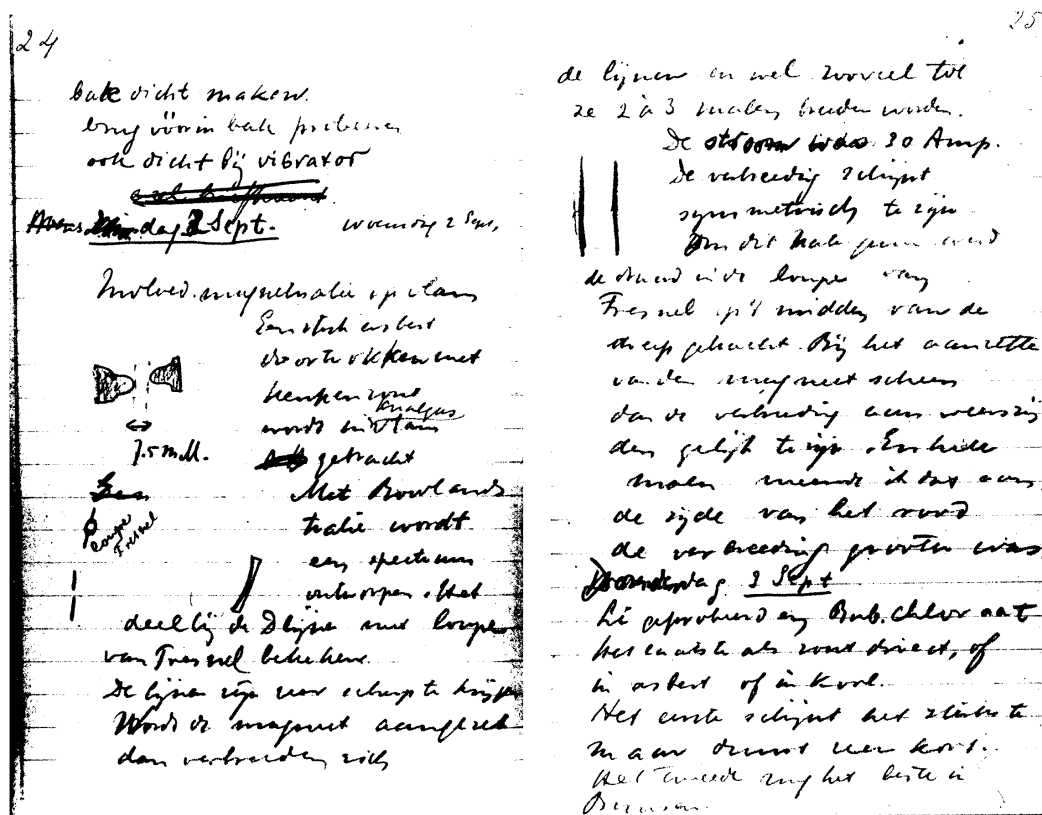 24
bak dicht maken.
brug vóór in bak probeeren
ook dicht bij vibrator
dag 2 Sept. woensdag 2 Sept.
Invloed magnetisatie op vlam
Een stuk asbest
doortrokken met
keukenzout
knalgas
wordt in vlam
gebracht
7.5 m.M.
Met Rowlands
tralie wordt
loupe
Fresnel
een spectrum
ontworpen. Het
deel bij de D lijn met loupe
van Fresnel bekeken.
De lijnen zijn zeer scherp te krijgen
Wordt de magneet aangezet
dan verbreeden zich
25
de lijnen en wel zooveel tot
ze 2 à 3 malen breeder worden.
De stroom was 30 Amp.
De verbreeding schijnt
symmetrisch te zijn
Om dit na te gaan werd
de draad in de loupe van
Fresnel op 't midden van de
streep gebracht. Bij het aanzetten
van den magneet scheen
dan de verbreeding aan weerszij
den gelijk te zijn. Enkele
malen meende ik dat aan
de zijde van het rood
de verbreeding grooter was
Donderdag 3 Sept
Li geprobeerd en Rub. Chloraat
Het laatste als zout direct, of
in asbest of in kool.
Het eerste schijnt het sterkste
maar duurt zeer kort.
Het tweede nog het beste in
Bunsen.